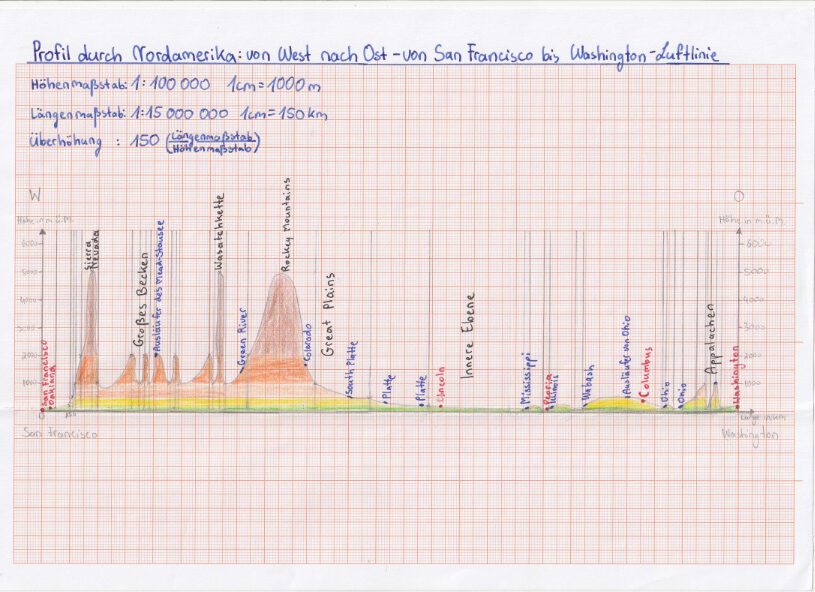 Profil durch Nordamerika: von West nach Ost - von San Francisco bis Washington - Luftlinie
Höhenmaßstab: 1:100 000 1cm = 1000m
Längenmaßstab: 1:15 000 000 1cm = 150km
Überhöhung : 150 (Längenmaßstab/Höhenmaßstab)
W
O
Höhe in m.ü.M.
Höhe in m.ü.M.
6000
5000
4000
3000
2000
1000
0
6000
5000
4000
3000
2000
1000
San Francisco
Oakland
Sierra
Nevada
Großes Becken
Ausläufer des Mead-Stausee
Wasatchkette
Green River
Rocky Mountains
Colorado
Great Plains
South Platte
Platte
Platte
Lincoln
Innere Ebene
Mississippi
Peoria
Illinois
Wabash
Ausläufer von Ohio
Columbus
Ohio
Ohio
Appalachen
Washington
150
Länge in km
San Francisco
Washington